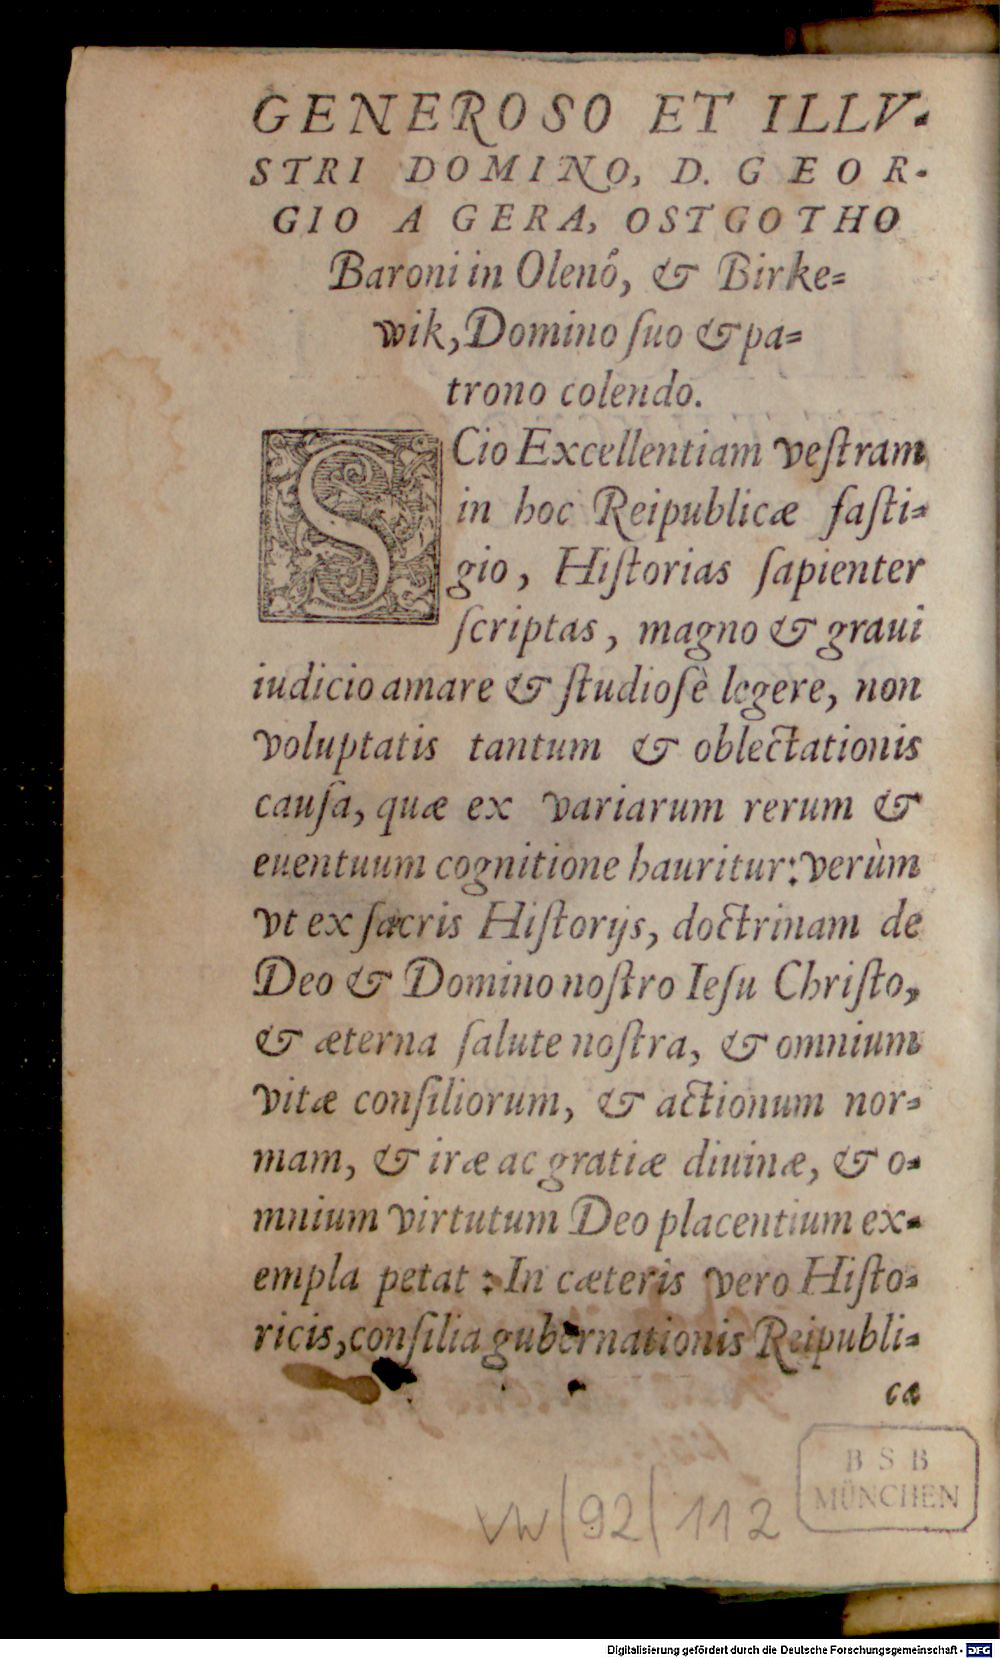 GENEROSO ET ILLV-
STRI DOMINO, D. GEOR-
GIO A GERA, OSTGOTHO
Baroni in Olenó, & Birke=
wik, Domino ſuo & pa=
trono colendo.
SCio Excellentiam veſtram
in hoc Reipublicæ faſti=
gio, Hiſtorias ſapienter
ſcriptas, magno & graui
iudicio amare & ſtudioſè legere, non
voluptatis tantum & oblectationis
cauſa, quæ ex variarum rerum &
euentuum cognitione hauritur: verùm
vt ex ſacris Hiſtorijs, doctrinam de
Deo & Domino noſtro Ieſu Chriſto,
& æterna ſalute noſtra, & omnium
vitæ conſiliorum, & actionum nor=
mam, & iræ ac gratiæ diuinæ, & o=
mnium virtutum Deo placentium ex=
empla petat: In cæteris vero Hiſto=
ricis, conſilia gubernationis Reipubli=
cæ
BSB
MÜNCHEN
VW(92(112
Digitalisierung gefördert durch die Deutsche Forschungsgemeinschaft - DFG